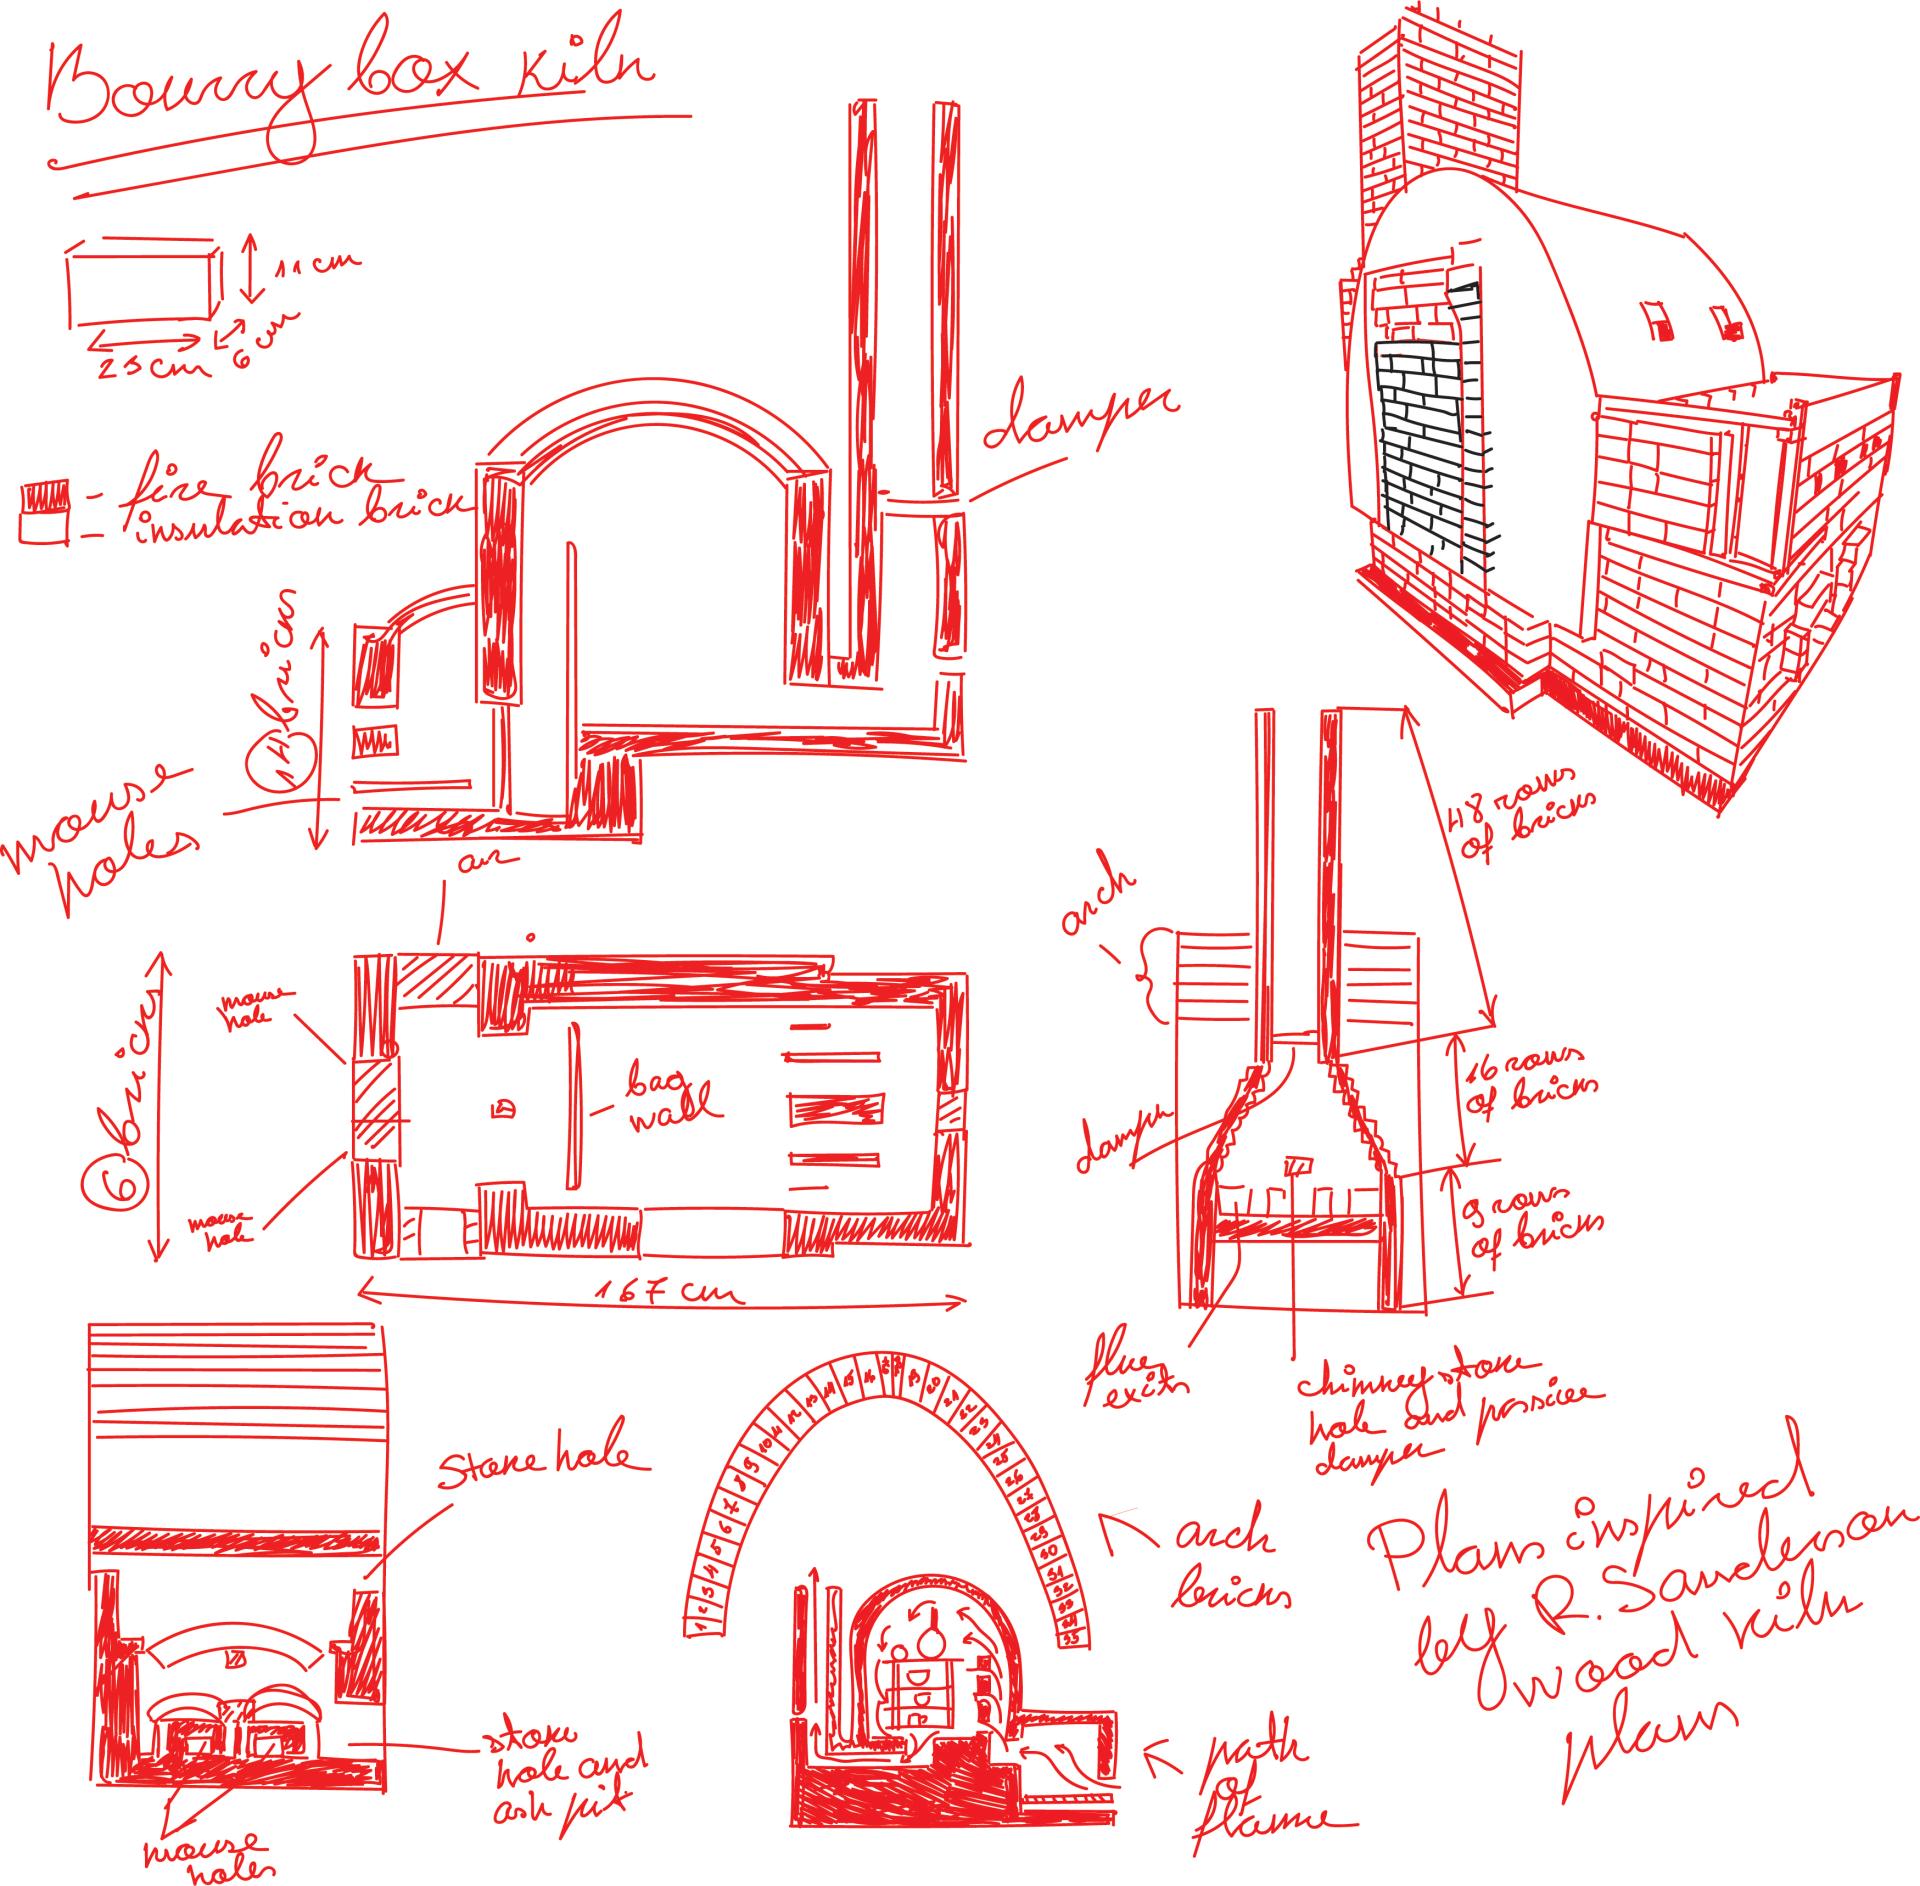 Bourry box kiln
11 cm
23 cm
6 cm
- fire brick
- insulation brick
damper
14 bricks
mouse
holes
air
6 bricks
mouse
hole
mouse
hole
bag
wall
167 cm
arch
damper
48 rows
of bricks
16 rows
of bricks
9 rows
of bricks
flue
exits
chimney stoke
hole and passive
damper
stoke hole
stoke
hole and
ash pit
mouse
holes
1 2 3 4 5 6 7 8 9 10 11 12 13 14 15 16 17 18 19 20 21 22 23 24 25 26 27 28 29 30 31 32 33 34 35
arch
bricks
path
of
flame
Plans inspired
by R. Sanderson
wood kiln
plans